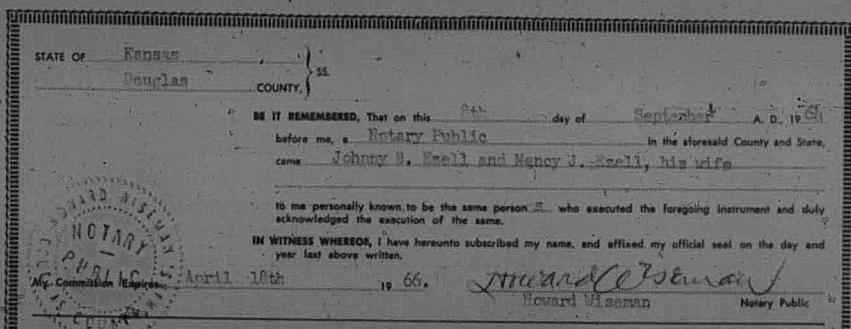 STATE OF Kansas
Douglas COUNTY, } SS.
BE IT REMEMBERED, That on this 8th day of September A. D., 1964
before me, a Notary Public In the aforesaid County and State,
came Johnny B. Ezell and Nancy J. Ezell, his wife
to me personally known to be the same person s who executed the foregoing instrument and duly
acknowledged the execution of the same.
IN WITNESS WHEREOF, I have hereunto subscribed my name, and affixed my official seal on the day and
year last above written.
HOWARD WISEMAN
NOTARY
PUBLIC
My Commission Expires April 18th 19 66. Howard Wiseman
Howard Wiseman Notary Public